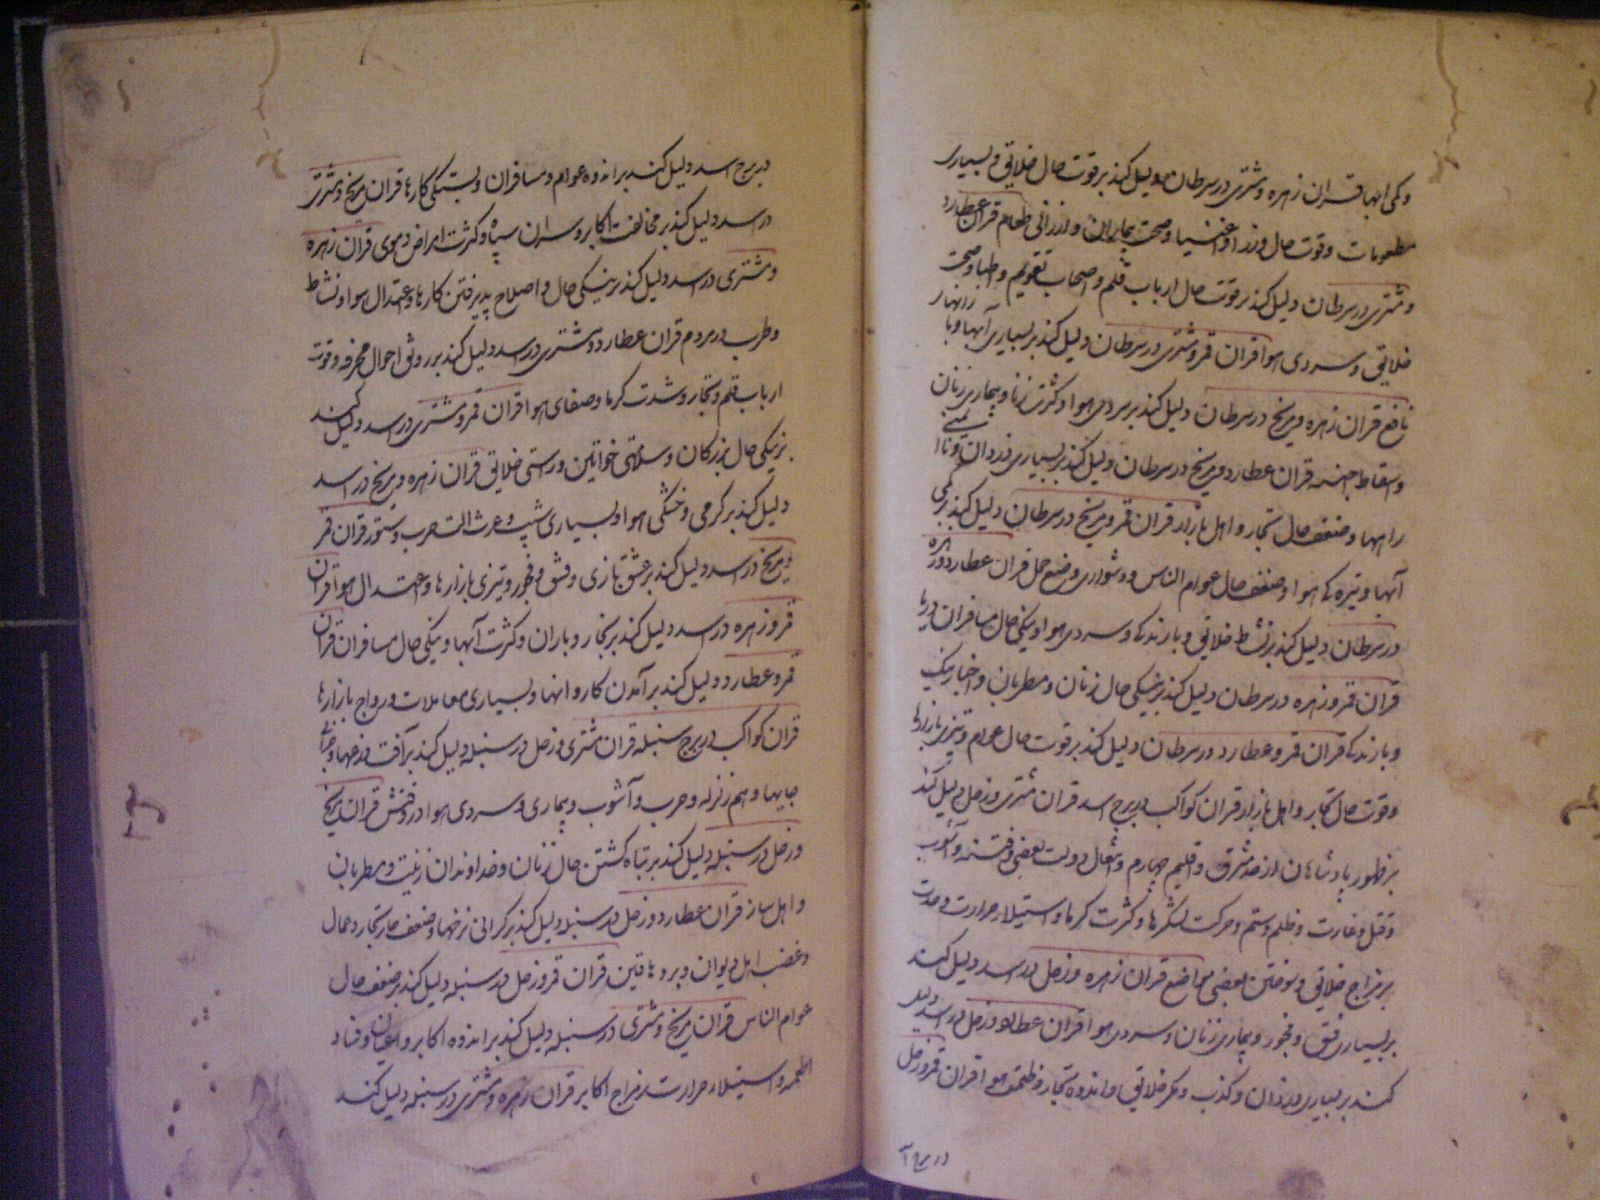 وکمی ابها قران زهره و مشتری در سرطان دلیل کند بر قوت حال خلایق و بسیاری
مطعومات و قوت حال وزرا و اغنیا و صحت بیماران و ارزانی طعام قران عطارد
و مشتری در سرطان دلیل کند بر قوت حال ارباب قلم و اصحاب تقویم و اطبا و صحت
خلایق و سردی هوا قران قمر و مشتری در سرطان دلیل کند بر بسیاری آبها و با
نافع قران زهره و مریخ در سرطان دلیل کند بر سردی هوا و کثرت زنا و بیماری زنان
و اسقاط اجنه قران عطارد و مریخ در سرطان دلیل کند بر بسیاری دزدان و نا
راهها و ضعف حال تجار و اهل بازار قران قمر و مریخ در سرطان دلیل کند بر کمی
آبها و تیره کی هوا و ضعف حال عوام الناس و دشواری وضع حمل قران عطارد و زهره
در سرطان دلیل کند بر نشاط خلایق و بارندکی و سردی هوا و نیکی حال مسافران دریا
قران قمر و زهره در سرطان دلیل کند بر نیکی حال زنان و مطربان و اخبار نیک
و بارندکی قران قمر و عطارد در سرطان دلیل کند بر قوت حال عوام و تیزی بازارها
و قوت حال اکابر و اهل بازار قران کواکب در برج اسد قران مشتری و زحل دلیل کند
بر ظهور پادشاهان از حد شرق و اقلیم چهارم و انتقال دولت بعضی و فتنه و آشوب
و قتل و غارت و ظلم و ستم و حرکت لشکرها و کثرت کرما و استیلاء حرارت و حدت
بر مزاج خلایق و سوختن بعضی مواضع قران زهره و زحل در اسد دلیل کند
بر بسیاری فسق و فجور و بیماری زنان و سردی هوا قران عطارد و زحل در اسد دلیل
کند بر بسیاری دزدان و کذب و مکر خلایق و اندوه تجار و ظلمت هوا قران قمر و زحل
در برج ا
در برج اسد دلیل کند بر اندوه عوام و مسافران و بستکی کارها قران مریخ و مشتری
در اسد دلیل کند بر مخالفت اکابر و سران سپاه و کثرت امراض دموی قران زهره
و مشتری در اسد دلیل کند بر نیکی حال و اصلاح پذیرفتن کارها و اعتدال هوا و نشاط
و طرب در مردم قران عطارد و مشتری در اسد دلیل کند بر رونق احوال محرفه و قوت
ارباب قلم و تجار و شدت کرما و صفای هوا قران قمر و مشتری در اسد دلیل کند
بر نیکی حال بزرکان و سلامتی خواتین و راستی خلایق قران زهره و مریخ در اسد
دلیل کند بر کرمی و خشکی هوا و بسیاری تب و عرت الت حرب و ستور قران قمر
و مریخ در اسد دلیل کند بر عشق بازی و فسق و فجور و تیزی بازارها و اعتدال هوا قران
قمر و زهره در اسد دلیل کند بر بخار و باران و کثرت آبها و نیکی حال مسافران قران
قمر و عطارد دلیل کند بر آمدن کاروانها و بسیاری معاملات و رواج بازارها
قران کواکب در برج سنبله قران مشتری و زحل در سنبله دلیل کند بر آفت نرخها و خرابی
جایها و هم زلزله و حرب و آشوب و بیماری و سردی هوا در وقتش قران مریخ
و زحل در سنبله دلیل کند بر تباه کشتن حال زنان و خداوندان زینت و مطربان
و اهل ساز قران عطارد و زحل در سنبله دلیل کند بر کرانی نرخها و ضعف حال تجار و عمال
و غضب اهل دیوان و دهاقین قران قمر و زحل در سنبله دلیل کند بر ضعف حال
عوام الناس قران مریخ و مشتری در سنبله دلیل کند بر اندوه اکابر و اعیان و فساد
اطعمه و استیلاء حرارت بر مزاج اکابر قران زهره و مشتری در سنبله دلیل کند